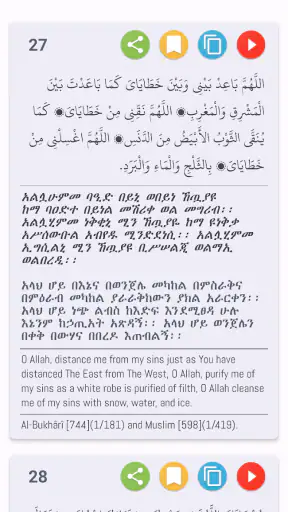 27
اللَّهُمَّ بَاعِدْ بَيْنِي وَبَيْنَ خَطَايَايَ كَمَا بَاعَدْتَ بَيْنَ
الْمَشْرِقِ وَالْمَغْرِبِ، اللَّهُمَّ نَقِّنِي مِنْ خَطَايَايَ، كَمَا
يُنَقَّى الثَّوْبُ الأَبْيَضُ مِنَ الدَّنَسِ، اللَّهُمَّ اغْسِلْنِي مِنْ
خَطَايَايَ، بِالثَّلْجِ وَالْمَاءِ وَالْبَرَدِ.
አልሏሁምመ ባዒድ በይኒ ወበይነ ኸጧያየ
ከማ ባዐድተ በይነል መሽሪቀ ወል መግሪብ፡፡
አልሏሂምመ ነቅቂኒ ሚን ኸጧያየ ከማ ዩነቅቃ
አሥሰውቡል አብየዱ ሚንድደነሲ፡፡ አልሏሂምመ
ኢግሲልኒ ሚን ኸጧያየ ቢሥሠልጂ ወልማኢ
ወልበረዲ፡፡
አላህ ሆይ በእኔና በወንጀሌ መካከል በምስራቅና
በምዕራብ መካከል ያራራቅከውን ያክል አራርቀን፡፡
አላህ ሆይ ነጭ ልብስ ከእድፍ እንደሚፀዳ ሁሉ
እኔንም ከኃጢአት አጽዳኝ፡፡ አላህ ሆይ ወንጀሌን
በቀቅ በውሃና በበረዶ እጠብልኝ፡፡
O Allah, distance me from my sins just as You have
distanced The East from The West, O Allah, purify me of
my sins as a white robe is purified of filth, O Allah cleanse
me of my sins with snow, water, and ice.
Al-Bukhârî [744](1/181) and Muslim [598](1/419).
28